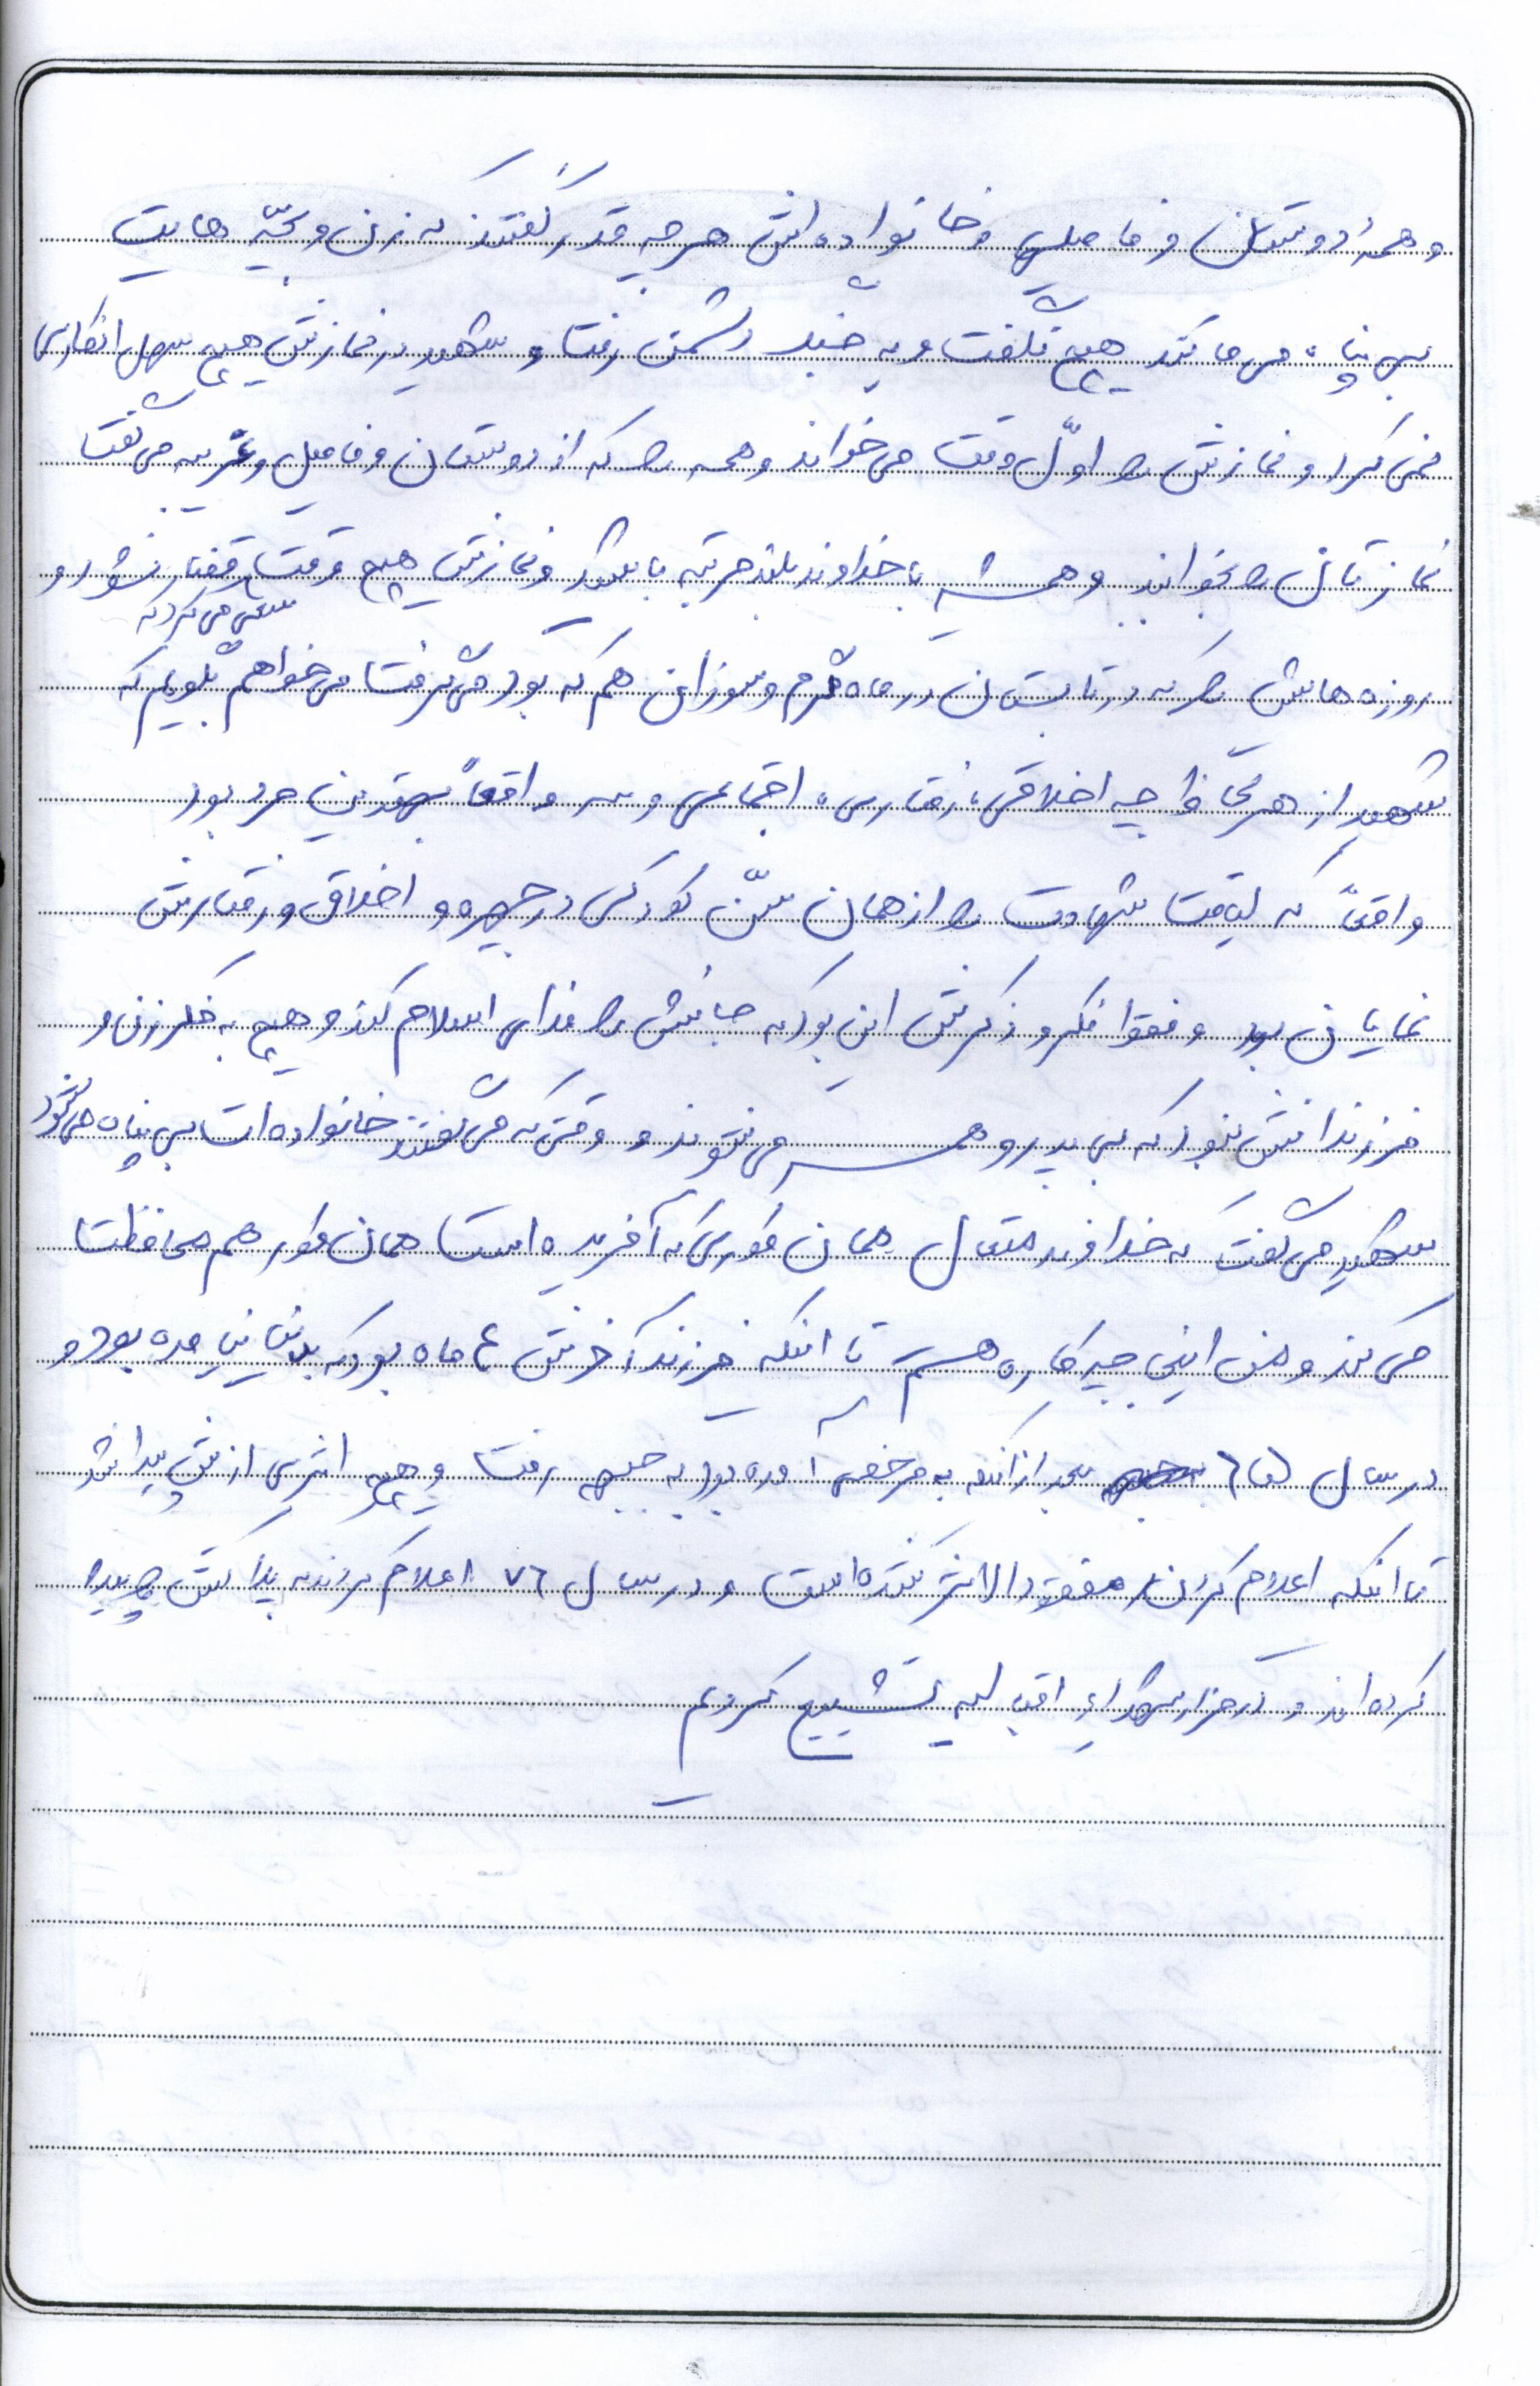 و همهٔ دوستان و فامیل و خانواده اش هر چه قدر گفتند که زن و بچّه هایت
بی پناه می مانند هیچ نگفت و به جنگ دشمن رفت و شهید در نمازش هیچ سهل انگاری
نمی کرد و نمازش را اوّل وقت می خواند و همه را که از دوستان و فامیل و غریبه می گفت
نمازتان را بخوانید و همیشه با خداوند بلند مرتبه باشید و نمازش هیچ وقت قضا نشود و
سعی می کرد که
روزه هایش را که در تابستان در ماه گرم و سوزان هم که بود می گرفت می خواهم بگویم که
شهید از هر لحاظ چه اخلاقی، رفتاری، اجتماعی و ... واقعاً بهترین مرد بود
واقعاً که لیاقت شهادت را از همان سنّ کودکی در چهره و اخلاق و رفتارش
نمایان بود و فقط فکر و ذکرش این بود که جانش را فدای اسلام کند و هیچ به فکر زن و
فرزندانش نبود که بی پدر و همسر می شوند و وقتی که می گفتند خانواده ات بی پناه می شود
شهید می گفت که خداوند متعال همان طوری که آفریده است همان طور هم محافظت
می کند و من اینجا چیکاره هستم تا اینکه فرزند آخرش ۶ ماه بود که بدنیا نیامده بود و
در سال ۶۵ بعد از اینکه به مرخصی آمده بود به جبهه رفت و هیچ اثری ازش پیدا نشد
تا اینکه اعلام کردند مفقود الاثر شده است و در سال ۷۶ اعلام کردند که پلاکش را پیدا
کرده اند و در مزار شهدای اقبالیه تشییع کردیم